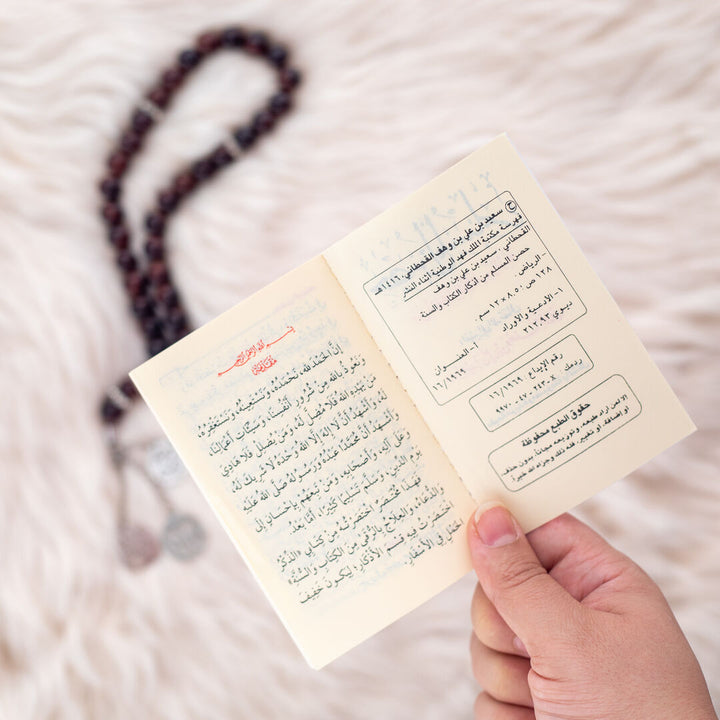 ح سعيد بن علي بن وهف القحطاني، ١٤١٦هـ
فهرسة مكتبة الملك فهد الوطنية أثناء النشر
القحطاني، سعيد بن علي بن وهف
حصن المسلم من أذكار الكتاب والسنة.
- الرياض.
١٢٨ ص، ٨.٥×١٢ سم.
١- الأدعية والأوراد أ- العنوان
ديوي ٢١٢.٩٣ ١٦/١٩٦٩
رقم الإيداع ١٦/١٩٦٩
حقوق الطبع محفوظة
إلا لمن أراد طبعه، وتوزيعه مجاناً، بدون حذف،
أو إضافة، أو تغيير، فله ذلك وجزاه الله خيراً.
بسم الله الرحمن الرحيم
مقدمة
إِنَّ الْحَمْدَ لِلَّهِ، نَحْمَدُهُ، وَنَسْتَعِينُهُ، وَنَسْتَغْفِرُهُ،
وَنَعُوذُ بِاللهِ مِنْ شُرُورِ أَنْفُسِنَا، وَسَيِّئَاتِ أَعْمَالِنَا،
مَنْ يَهْدِهِ اللهُ فَلَا مُضِلَّ لَهُ، وَمَنْ يُضْلِلْ فَلَا هَادِيَ
لَهُ، وَأَشْهَدُ أَنْ لَا إِلَهَ إِلَّا اللهُ وَحْدَهُ لَا شَرِيكَ لَهُ،
وَأَشْهَدُ أَنَّ مُحَمَّدًا عَبْدُهُ وَرَسُولُهُ صَلَّى اللهُ عَلَيْهِ
وَعَلَى آلِهِ، وَأَصْحَابِهِ، وَمَنْ تَبِعَهُمْ بِإِحْسَانٍ إِلَى
يَوْمِ الدِّينِ، وَسَلَّمَ تَسْلِيمًا كَثِيرًا، أَمَّا بَعْدُ:
فَهَذَا مُخْتَصَرٌ اخْتَصَرْتُهُ مِنْ كِتَابِي «الذِّكْرُ
وَالدُّعَاءُ، وَالعِلَاجُ بِالرُّقَى مِنَ الْكِتَابِ وَالسُّنَّةِ»
اخْتَصَرْتُ فِيهِ قِسْمَ الْأَذْكَارِ؛ لِيَكُونَ خَفِيفَ
الحَمْلِ فِي الْأَسْفَارِ.